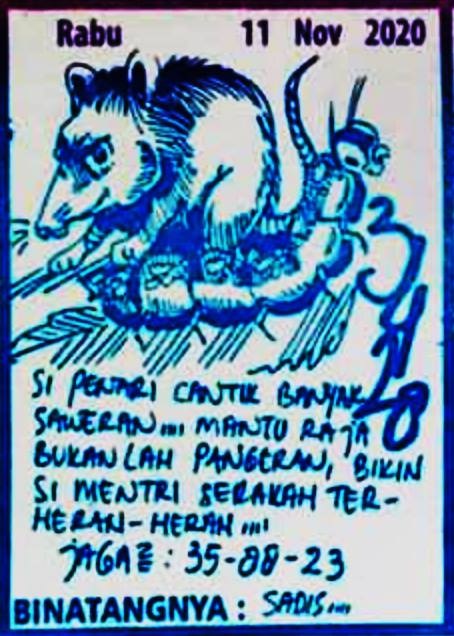 Rabu 11 Nov 2020
SI PENARI CANTIK BANYAK
SAWERAN.... MANTU RAJA
BUKANLAH PANGERAN, BIKIN
SI MENTRI SERAKAH TER-
HERAN-HERAN....
JAGA2 : 35-08-23
BINATANGNYA : SADIS....